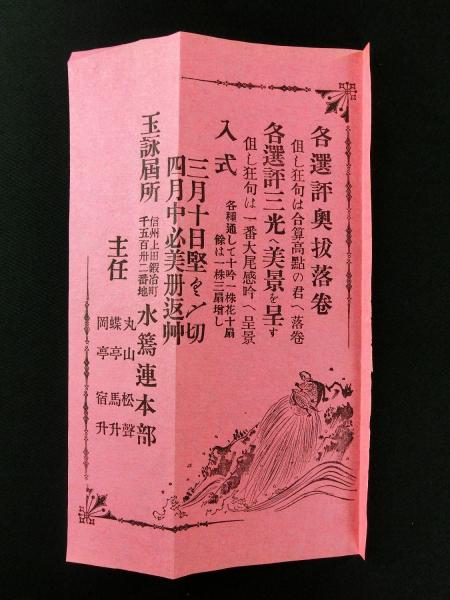 各選評奥拔落卷
但し狂句は合算高點の君へ落卷
各選評三光へ美景を呈す
但し狂句は一番大尾感吟へ呈景
入式
各種通して十吟一株花十扇
餘は一株三扇增し
三月十日堅を〆切
四月中必美册返艸
玉詠届所
信州上田鍛冶町
千五百卅二番地
水篶連本部
主任
丸山松聲
蝶亭馬升
岡亭宿升